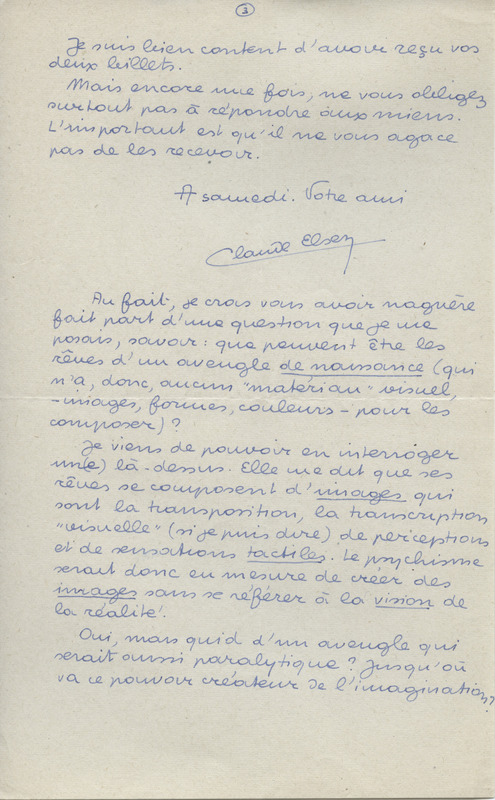 3
Je suis bien content d'avoir reçu vos
deux billets.
Mais encore une fois, ne vous obligez
surtout pas à répondre aux miens.
L'important est qu'il ne vous agace
pas de les recevoir.
A samedi. Votre ami
Claude Elsen
Au fait, je crois vous avoir naguère
fait part d'une question que je me
posais, savoir : que peuvent être les
rêves d'un aveugle de naissance (qui
n'a, donc, aucun "matériau" visuel,
-images, formes, couleurs- pour les
composer) ?
Je viens de pouvoir en interroger
un(e) là-dessus. Elle me dit que ses
rêves se composent d'images qui
sont la transposition, la transcription
"visuelle" (si je puis dire) de perceptions
et de sensations tactiles. Le psychisme
serait donc en mesure de créer des
images sans se référer à la vision de
la réalité.
Oui, mais quid d'un aveugle qui
serait aussi paralytique ? Jusqu'où
va ce pouvoir créateur de l'imagination ?